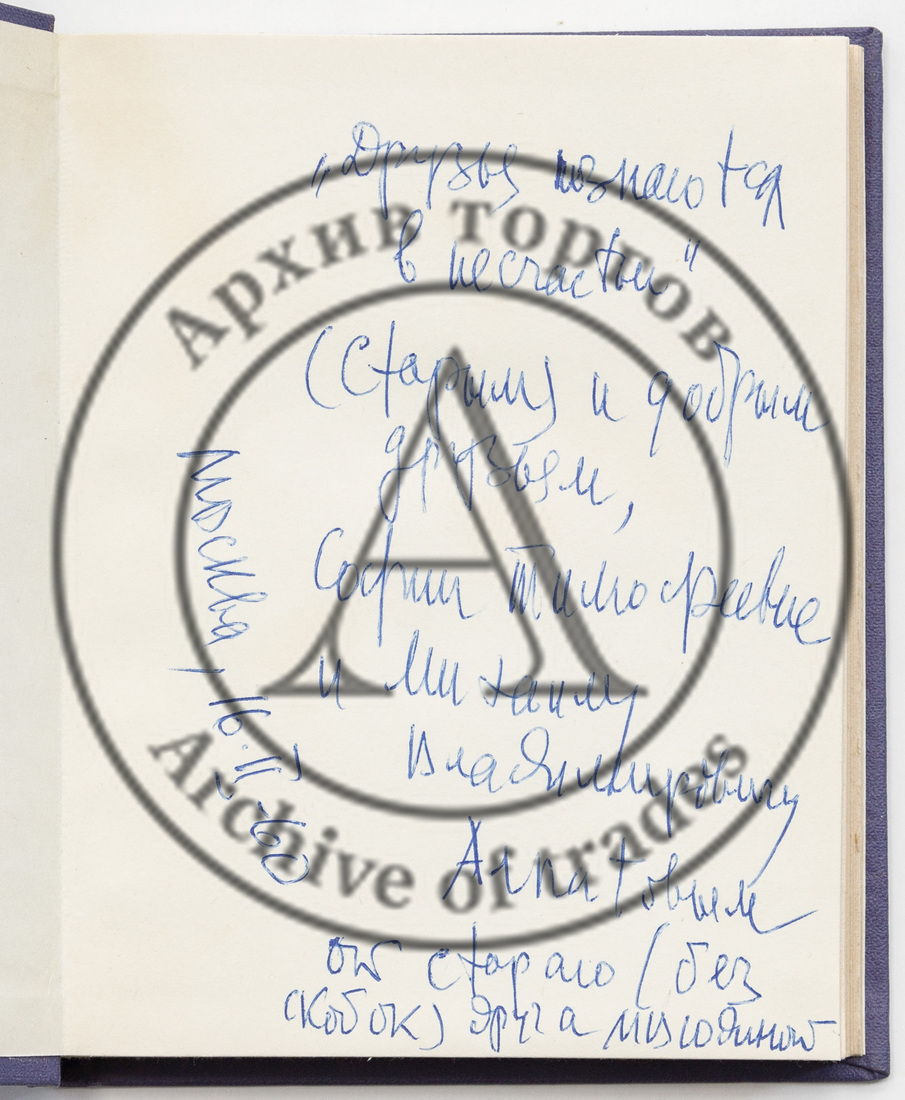 Архив торгов
„Друзья познаются
в несчастьи"
(Старым) и добрым
друзьям,
Софии Тимофеевне
и Михаилу
Владимировичу
Алпатовым
от стараго (без
скобок) друга
Москва, 16.II.60
A
Archive of trades